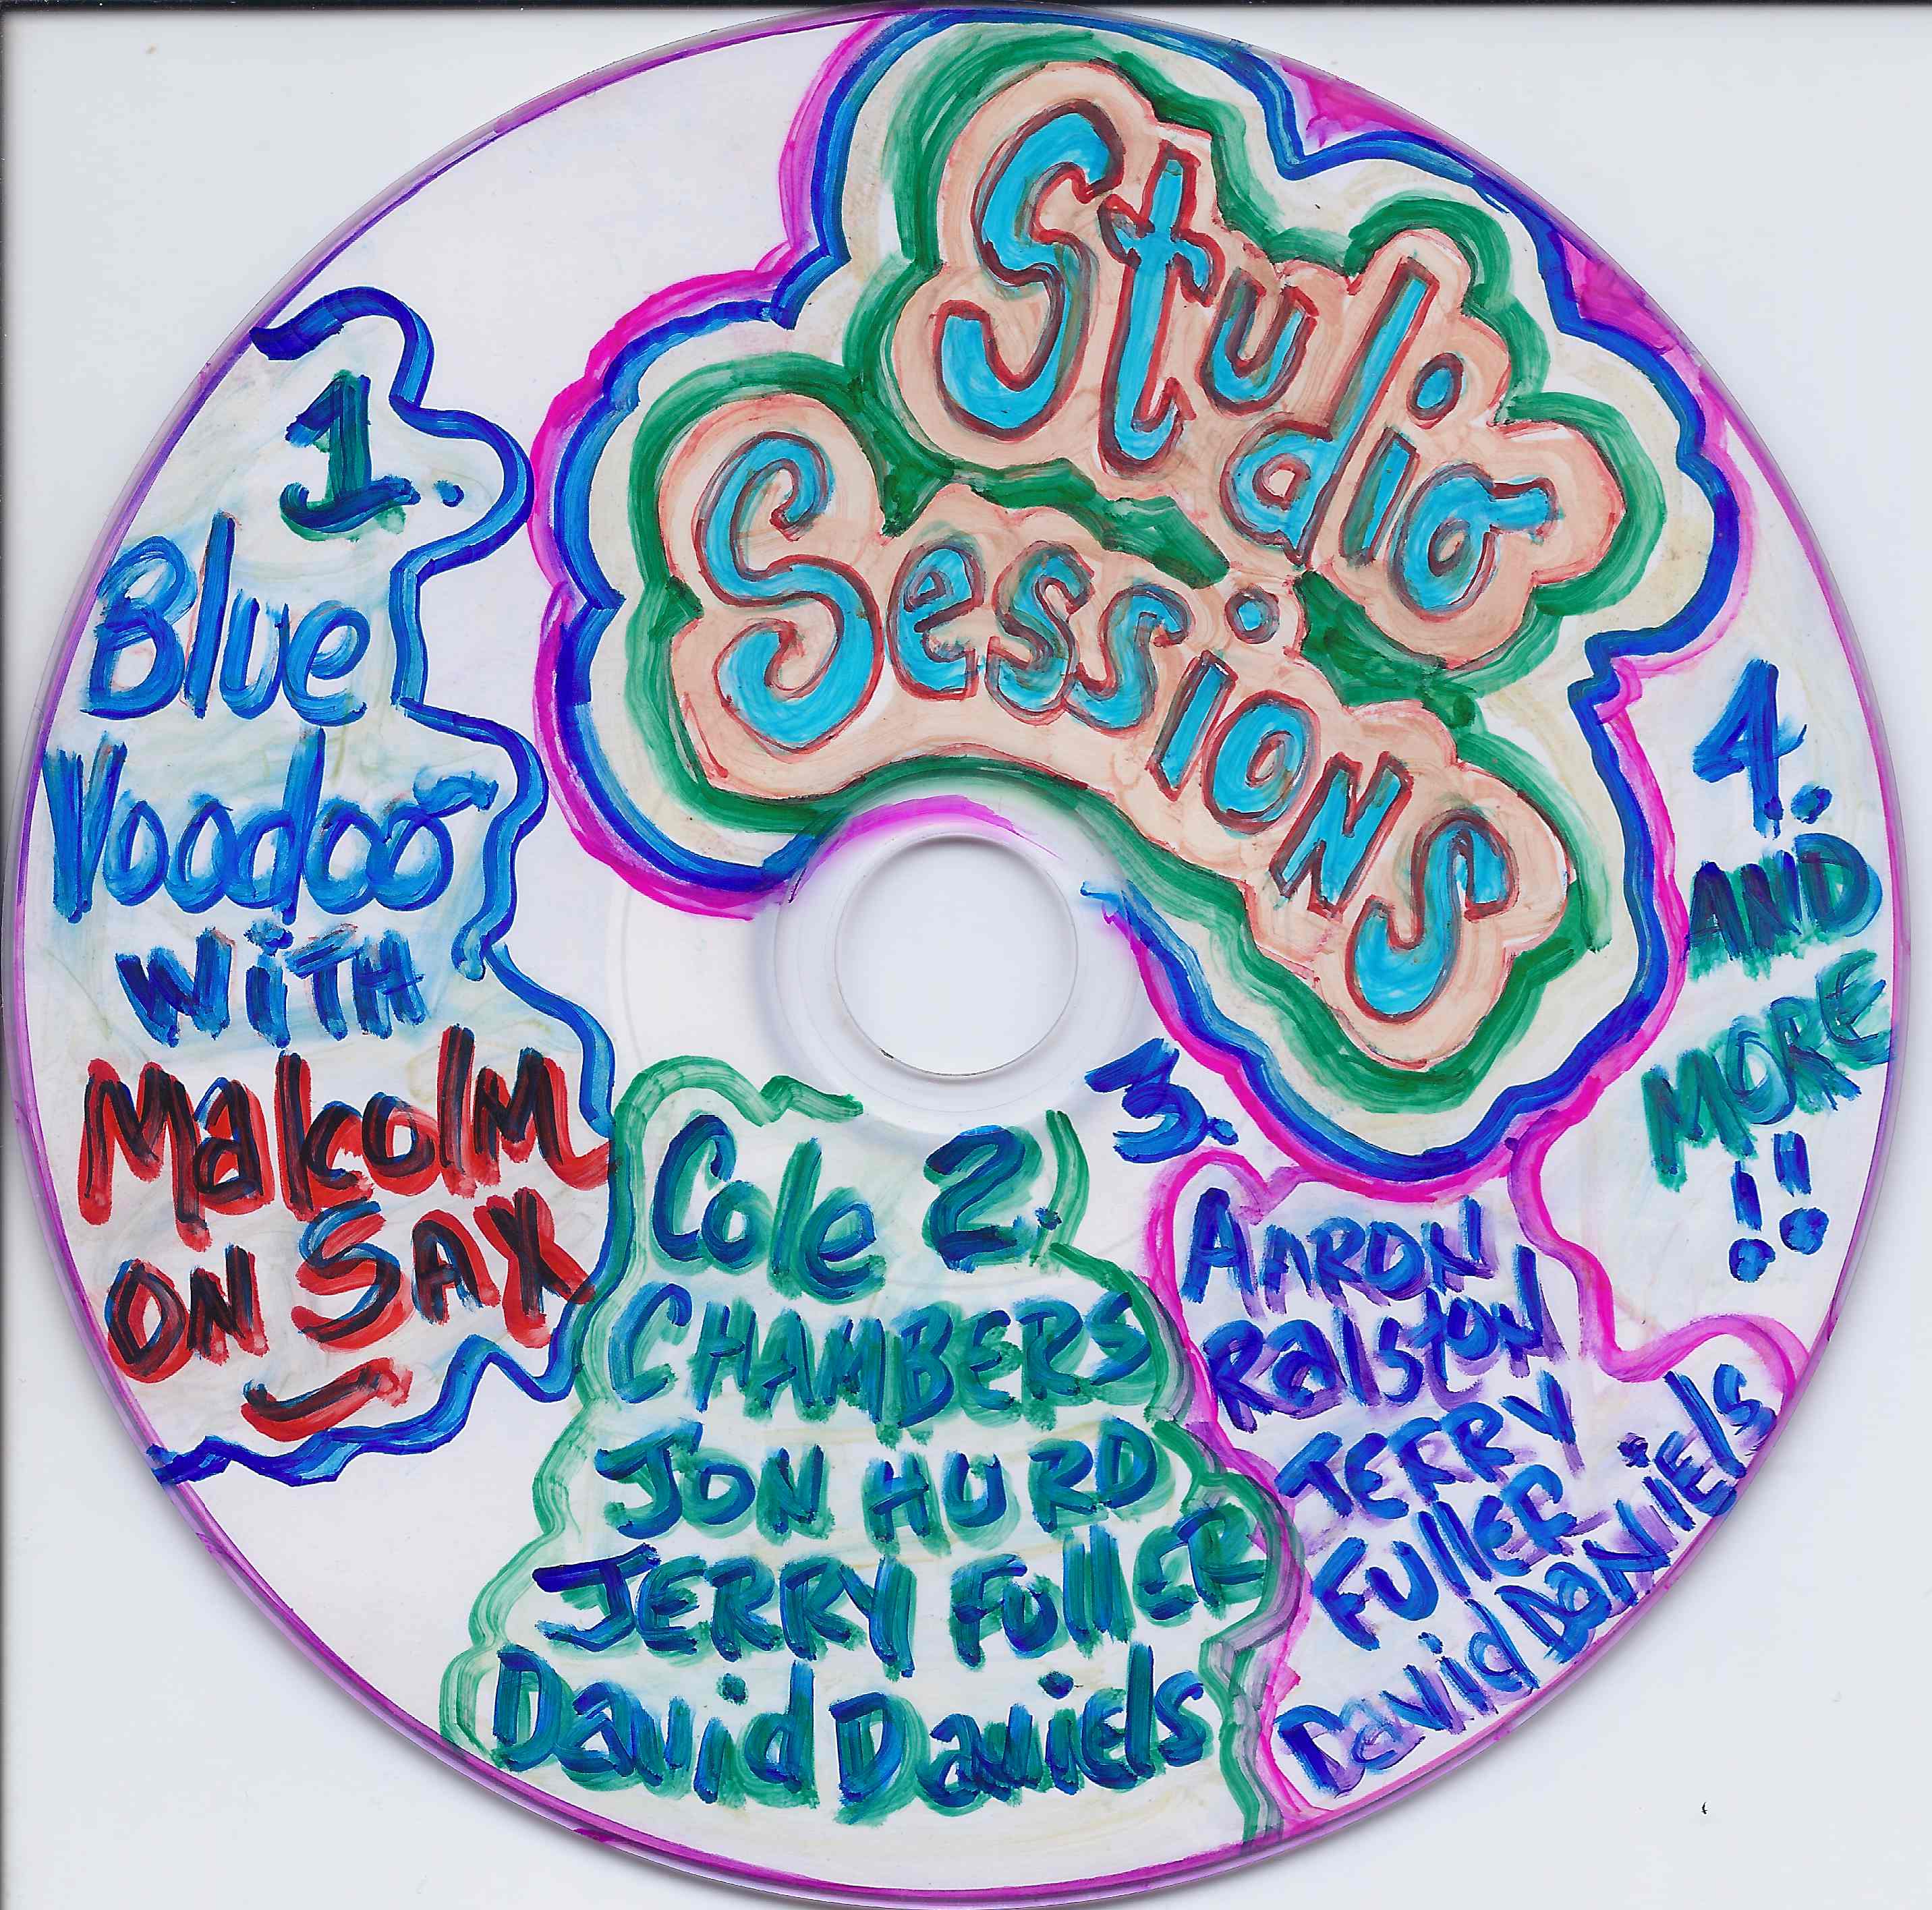 Studio
Sessions
1.
Blue
Voodoo
WiTH
MalcolM
ON SAX
2.
Cole
CHAMBERS
JON HURD
JERRY FullER
David Daniels
3.
AARON
RalstON
JERRY
FullER
David DaNiEls
4.
AND
MORE
!!